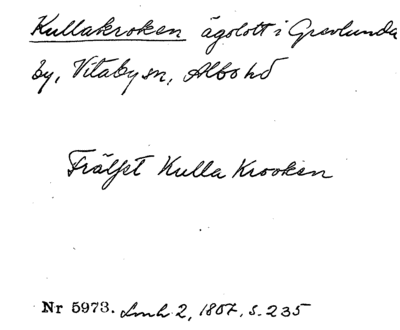 Kullakroken ägolott i Grevlunda
by, Vitaby sn, Albo hd
Frälset Kulla Krooken
Nr 5973. Lmh 2, 1807, s. 235